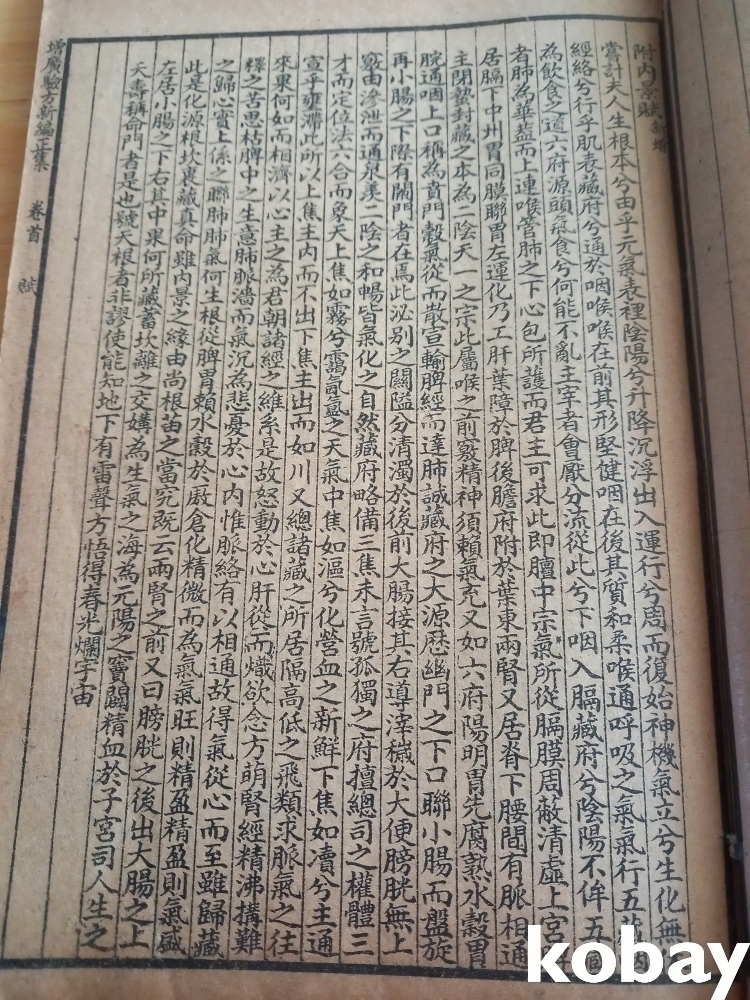 附內景賦新增
嘗計夫人生根本兮由乎元氣表裡陰陽兮升降沉浮出入運行兮周而復始神機氣立兮生化無
經絡兮行乎肌表藏府兮通於咽喉喉在前其形堅健咽在後其質和柔喉通呼吸之氣氣行五藏
為飲食之道六府源頭氣食兮何能不亂主宰者會厭分流從此兮下咽入膈藏府兮陰陽不侔五
者肺為華蓋而上連喉管肺之下心包所護而君主可求此即膻中宗氣所從膈膜周蔽清虛上宮
居膈下中州胃同膜聯胃左運化乃工肝葉障於脾後膽府附於葉東兩腎又居脊下腰間有脈相通
主閉蟄封藏之本為二陰天一之宗此屬喉之前竅精神須賴氣充又如六府陽明胃先腐熟水穀胃
脘通咽上口稱為賁門穀氣從而散宣輸脾經而達肺誠藏府之大源歷幽門之下口聯小腸而盤旋
再小腸之下際有闌門者在焉此泌別之關隘分清濁於後前大腸接其右導滓穢於大便膀胱無上
竅由滲泄而通泉羨二陰之和暢皆氣化之自然藏府略備三焦未言號孤獨之府擅總司之權體三
才而定位法六合而象天上焦如霧兮靄氤氳之天氣中焦如漚兮化營血之新鮮下焦如瀆兮主通
宣乎壅滯此所以上焦主內而不出下焦主出而如川又總諸藏之所居隔高低之飛類求脈氣之往
來果何如而相濟以心主之為君朝諸經之維系是故怒動於心肝從而熾欲念方萌腎經精沸搆難
釋之苦思枯脾中之生意肺脈濇而氣沉為悲憂於心內惟脈絡有以相通故得氣從心而至雖歸藏
之歸心實上係之聯肺肺氣何生根從脾胃賴水穀於廒倉化精微而為氣氣旺則精盈精盈則氣盛
此是化源根坎裏藏真命雖內景之緣由尚根苗之當究既云兩腎之前又曰膀胱之後出大腸之上
左居小腸之下右其中果何所藏蓄坎離之交媾為生氣之海為元陽之竇闢精血於子宮司人生之
夭壽稱命門者是也號天根者非謬使能知地下有雷聲方悟得春光爛宇宙
增廣驗方新編正集 卷首 賦
kobay